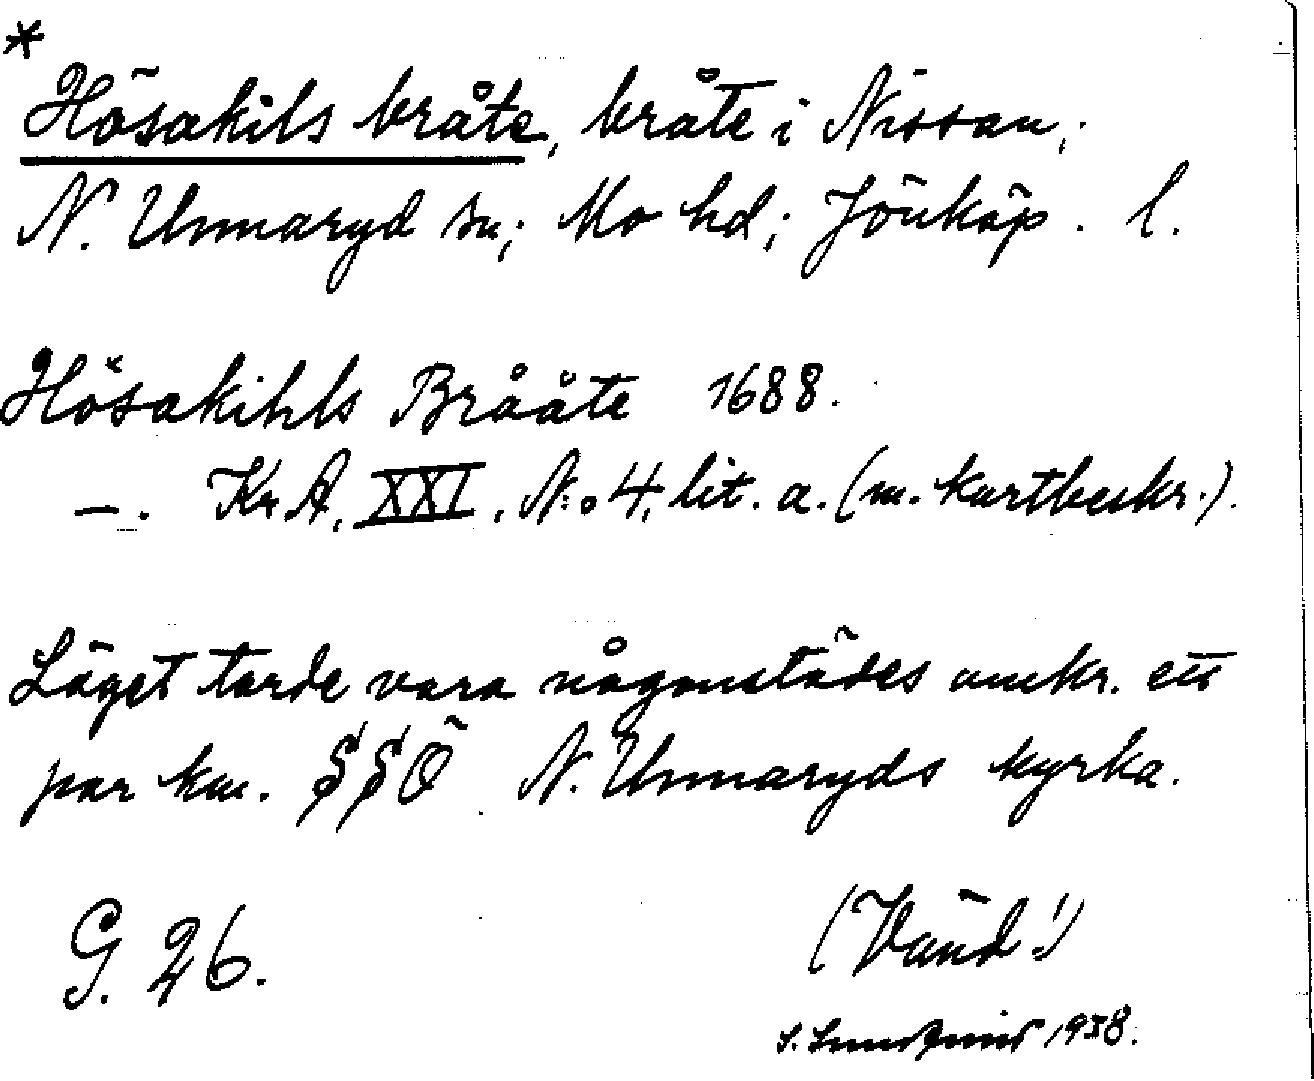 *
Hösakils bråte, bråte i Nissan;
N. Unnaryd sn; Mo hd; Jönköp. l.
Hösakihls Brååte 1688.
—. Kr.A, XXI, N:o 4, lit. a. (m. kartbeskr.).
Läget torde vara någonstädes omkr. ett
par km. SSÖ N. Unnaryds kyrka.
G. 26.
(Vänd!)
1938.